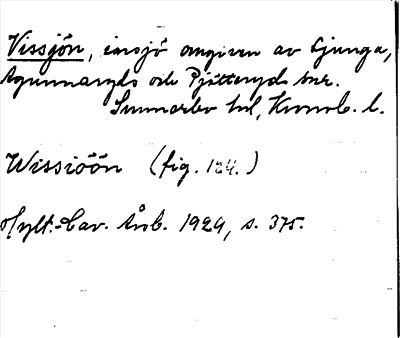 Vissjön, insjö omgiven av Ljunga,
Agunnaryds och Pjätteryds snr.
Sunnerbo hd, Kronob. l.
Wissiöön (fig. 124.)
Hylt.-Cav. Årsb. 1924, s. 375.